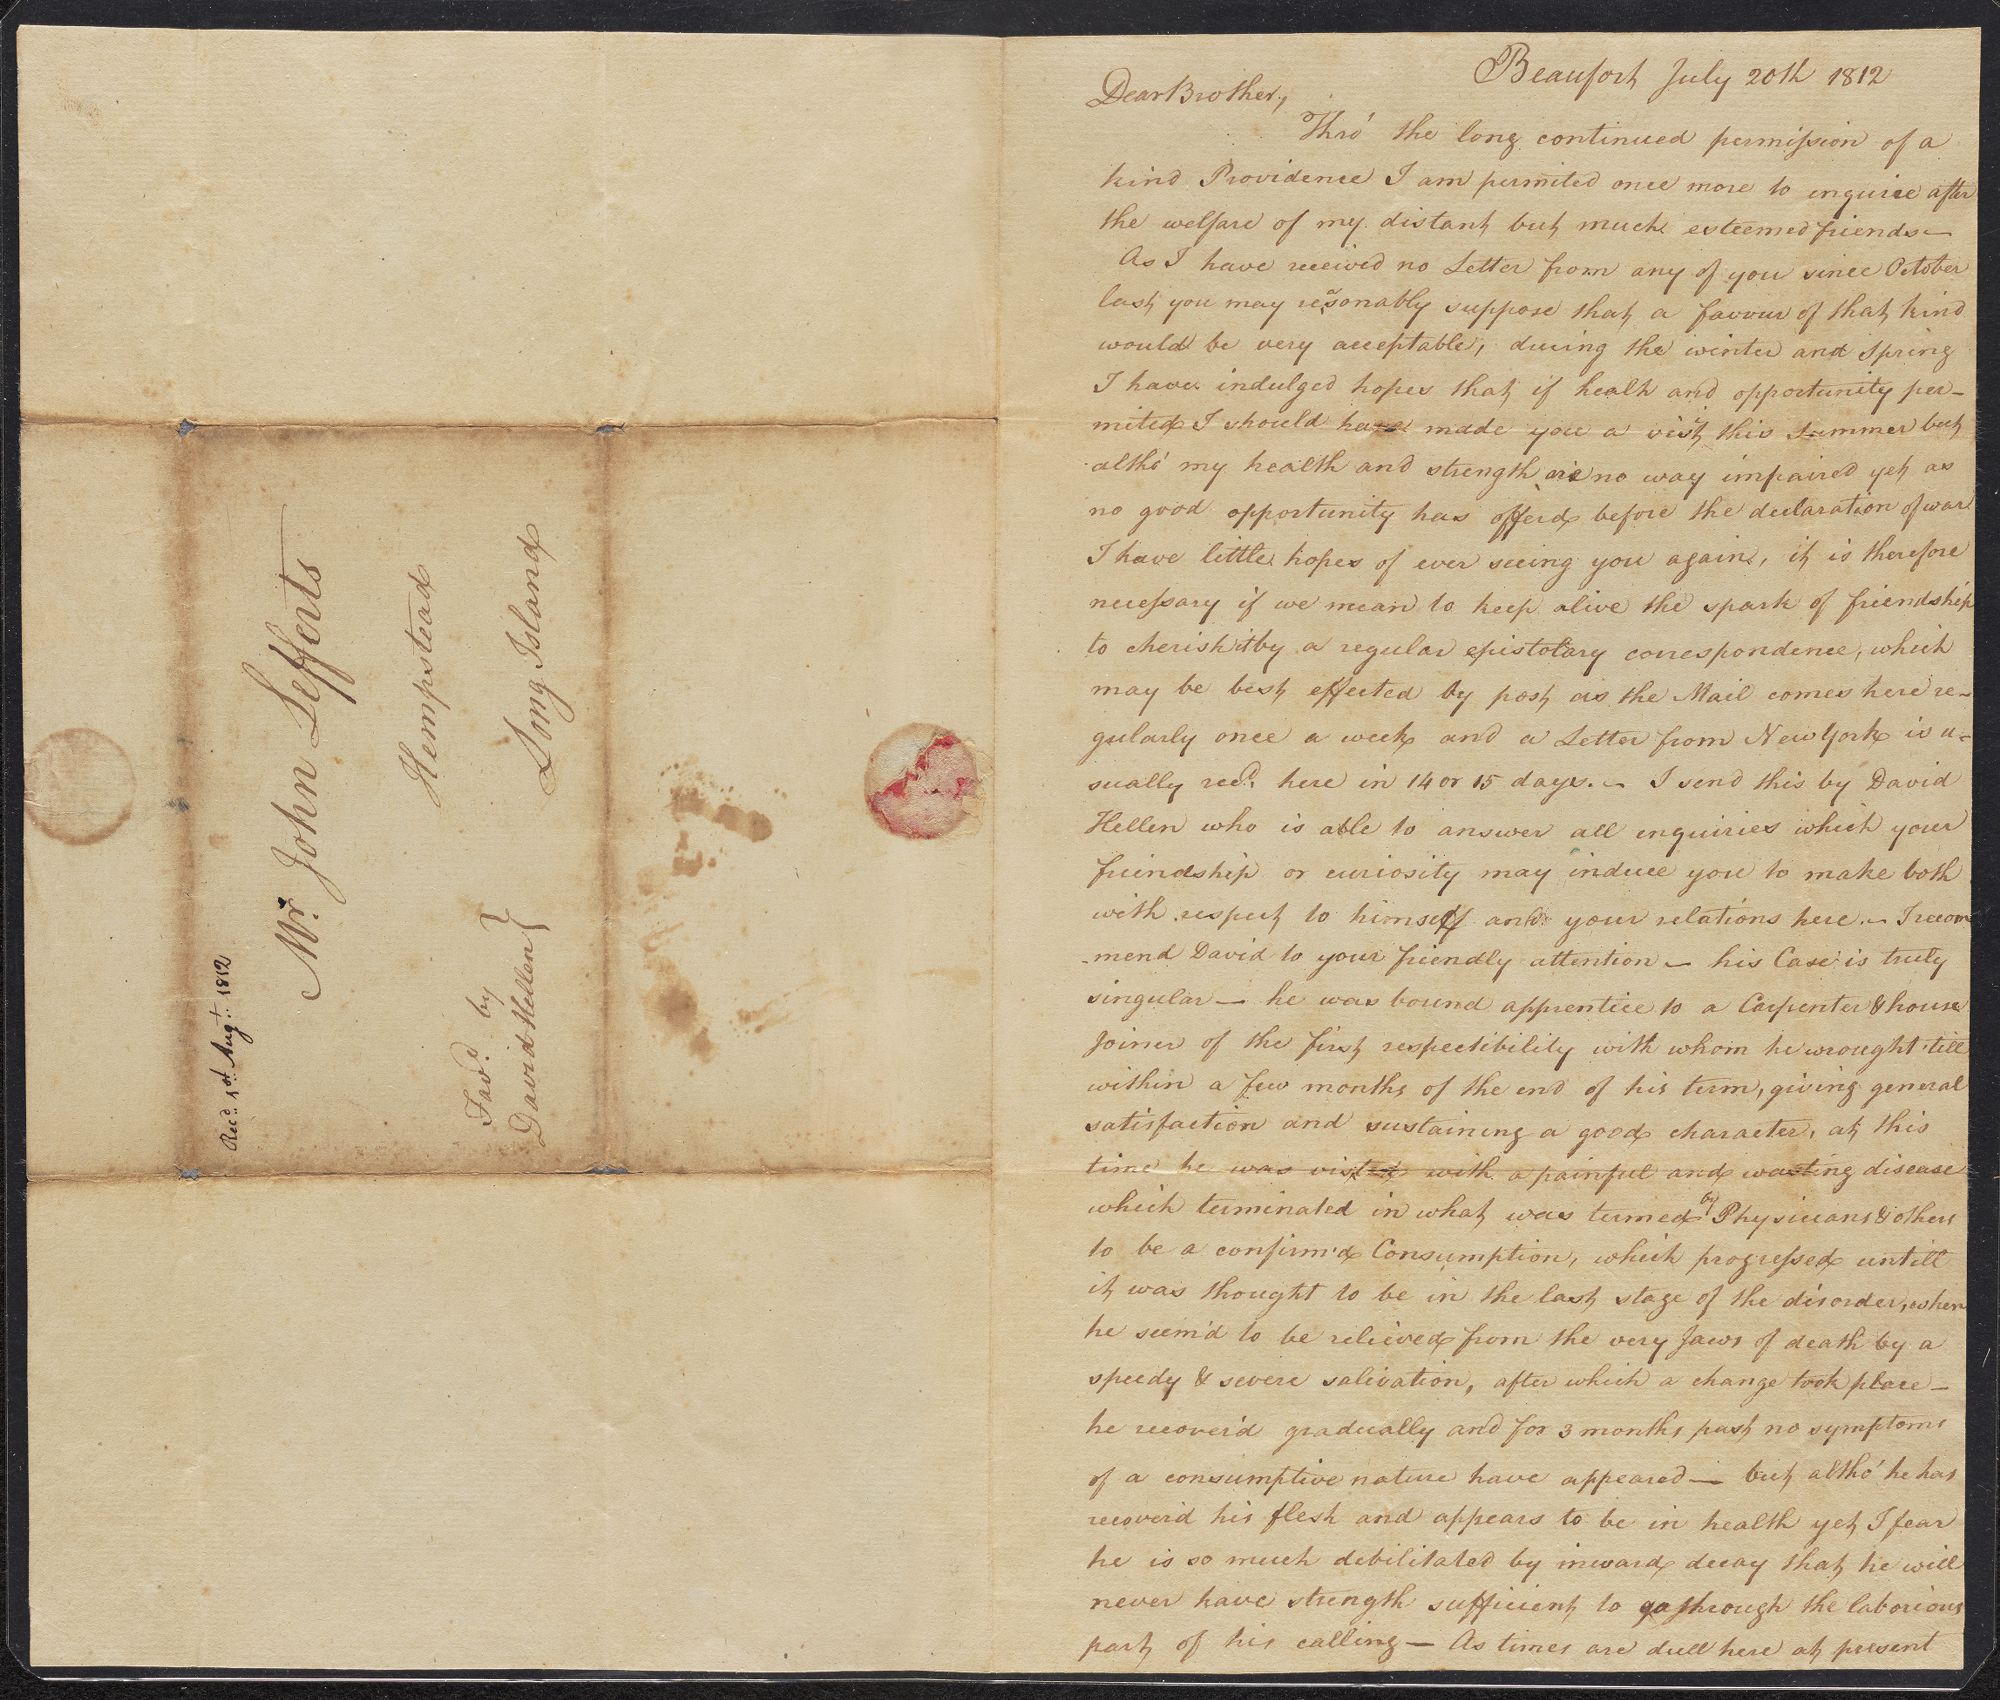 Mr. John Lefferts
Hempstead
Long Island
Favd. by
David Hellen}
Recd. 1st. Augt. 1812
Beaufort July 20th 1812
Dear Brother,
Thro' the long continued permission of a
kind Providence I am permited once more to enquire after
the welfare of my distant but much esteemed friends—
As I have received no Letter from any of you since October
last you may reasonably suppose that a favour of that kind
would be very acceptable, during the winter and Spring
I have indulged hopes that if health and opportunity per-
mited I should have made you a visit this Summer but
altho' my health and strength are no way impaired yet as
no good opportunity has offerd before the declaration of war
I have little hopes of ever seeing you again, it is therefore
necessary if we mean to keep alive the spark of friendship
to cherish it by a regular epistolary correspondence, which
may be best effected by post as the Mail comes here re-
gularly once a week and a Letter from New York is u-
sually recd. here in 14 or 15 days.— I send this by David
Hellen who is able to answer all enquiries which your
friendship or curiosity may induce you to make both
with respect to himself and your relations here.— I recom
-mend David to your friendly attention— his Case is truly
singular— he was bound apprentice to a Carpenter & house
Joiner of the first respectibility with whom he wrought till
within a few months of the end of his term, giving general
satisfaction and sustaining a good character, at this
time he was visted with a painful and wasting disease
which terminated in what was termed by Physicians & others
to be a confirm'd Consumption, which progressed untill
it was thought to be in the last stage of the disorder, when
he seem'd to be relieved from the very Jaws of death by a
speedy & severe salivation, after which a change took place—
he recover'd gradually and for 3 months past no symptoms
of a consumptive nature have appeared— but altho' he has
recover'd his flesh and appears to be in health yet I fear
he is so much debilitated by inward decay that he will
never have strength sufficient to go through the laborious
part of his calling— As times are dull here at present